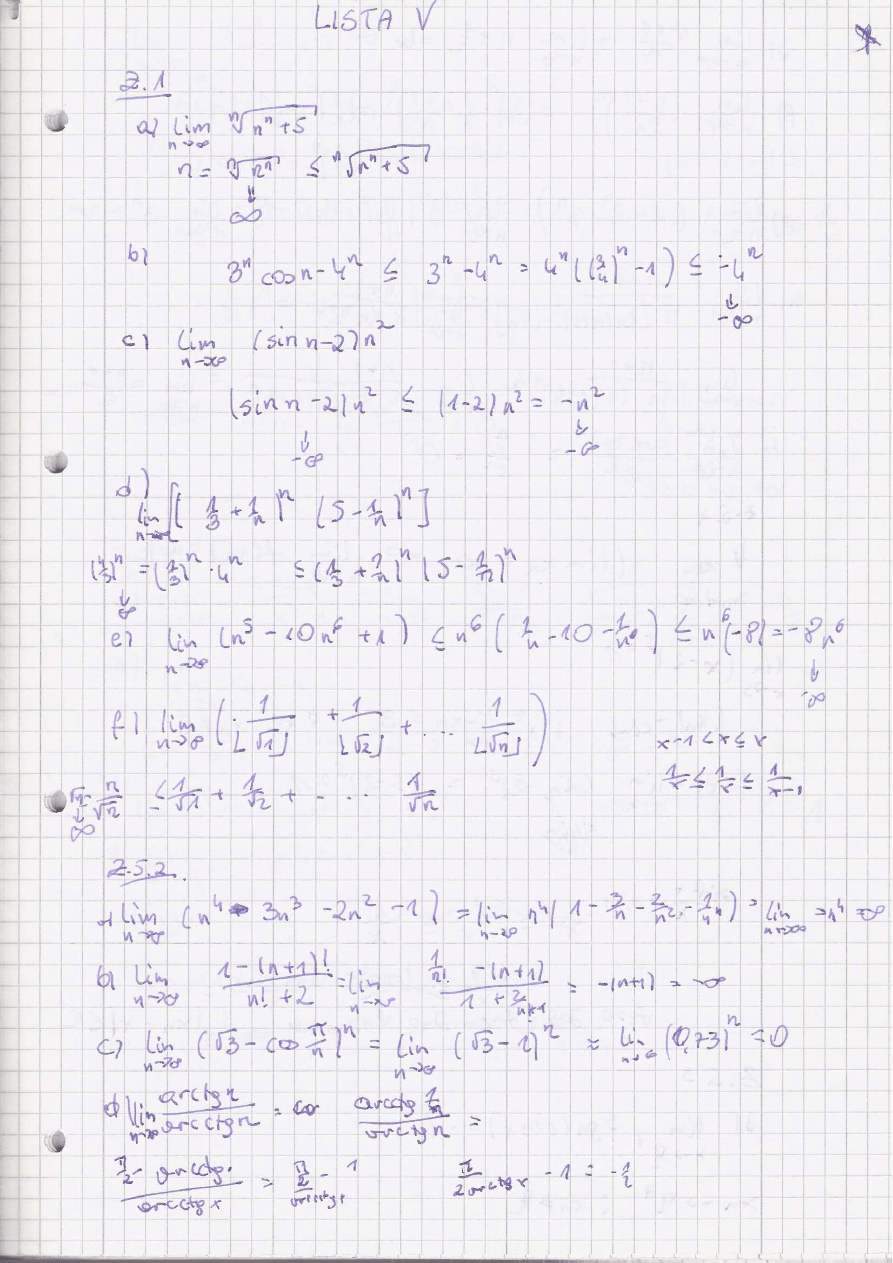 LISTA V
Z.1
a) lim n→∞ ⁿ√(nⁿ+5)
n = ⁿ√(nⁿ) ≤ ⁿ√(nⁿ+5)
↓
∞
b) 3ⁿ cos n - 4ⁿ ≤ 3ⁿ - 4ⁿ = 4ⁿ((3/4)ⁿ - 1) ≤ -4ⁿ
↓
-∞
c) lim n→∞ (sin n-2)n²
(sin n - 2)n² ≤ (1-2)n² = -n²
↓ ↓
-∞ -∞
d) lim n→∞ [(1/3 + 1/n)ⁿ (5 - 1/n)ⁿ]
(4/3)ⁿ = (1/3)ⁿ · 4ⁿ ≤ (1/3 + 1/n)ⁿ (5 - 1/n)ⁿ
↓
∞
e) lim n→∞ (n⁵ - 10n⁶ + 1) ≤ n⁶ (1/n - 10 - 1/n⁶) ≤ n⁶(-8) = -8n⁶
↓
-∞
f) lim n→∞ (1/⌊√1⌋ + 1/⌊√2⌋ + ... 1/⌊√n⌋)
x-1 < x ≤ x
1/x ≤ 1/x ≤ 1/x-1
√n = n/√n ≤ 1/√1 + 1/√2 + - ... 1/√n
↓
∞
Z.5.2.
a) lim n→∞ (n⁴ - 3n³ - 2n² - 1) = lim n→∞ n⁴(1 - 3/n - 2/n² - 1/n⁴) = lim n→∞ = n⁴ = ∞
b) lim n→∞ 1-(n+1)!/n! + 2 = lim n→∞ 1/n! - (n+1)/1 + = -(n+1) = -∞
c) lim n→∞ (√3 - cos π/n)ⁿ = lim n→∞ (√3 - 1)ⁿ ≈ lim n→∞ (0,73)ⁿ = 0
d) lim n→∞ arctg n/arcctg n = arcctg 1/n/arctg n =
π/2 - arcctg/arcctg x = π/2/arcctg x - 1 π/2arctg x - 1 = -1/2